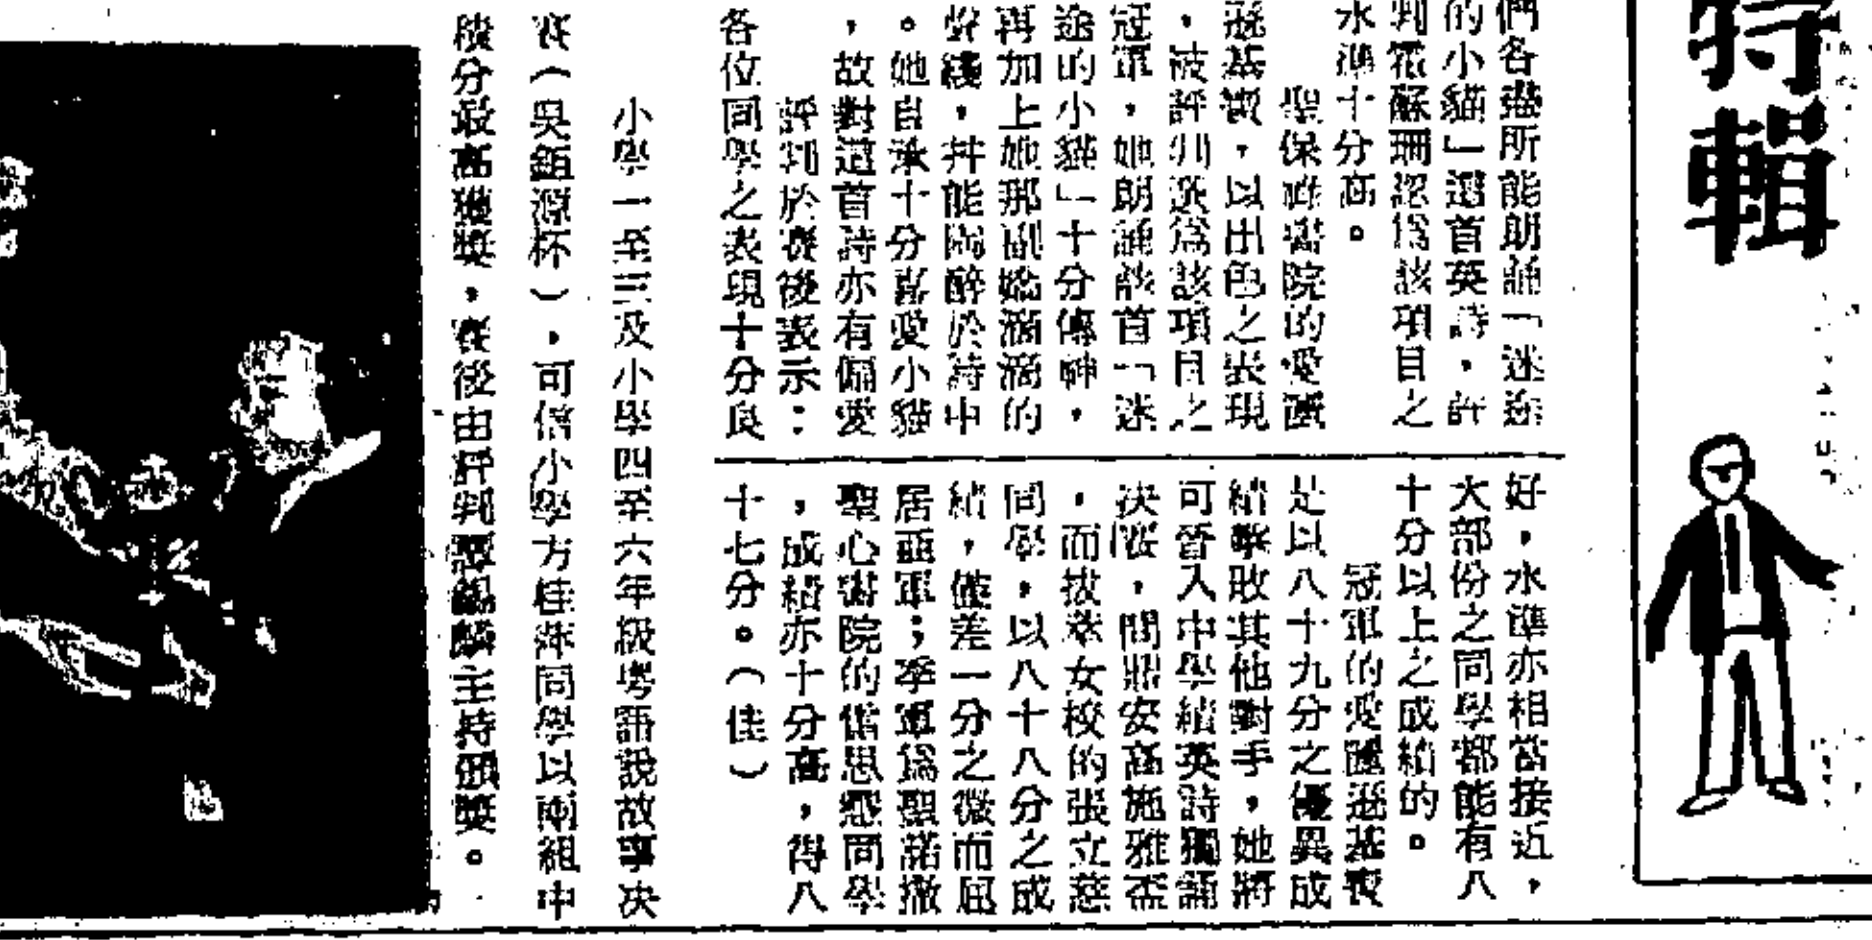 特輯
們各盡所能朗誦「迷途
的小貓」這首英詩,評
判霍蘇珊認爲該項目之
水準十分高。
聖保祿書院的愛
遜基賓,以出色之表現
,被評判選爲該項目之
冠軍,她朗誦該首「迷
途的小貓」十分傳神,
再加上她那副嬌滴滴的
聲綫,并能陶醉於詩中
。她自承十分喜愛小貓
,故對這首詩亦有偏愛
評判於賽後表示:
各位同學之表現十分良
好,水準亦相當接近,
大部份之同學都能有八
十分以上之成績的。
冠軍的愛遜基
是以八十九分之優異成
績擊敗其他對手,她將
可晉入中學組英詩獨誦
決賽,問鼎安高施雅盃
,而拔萃女校的張立慈
同學,以八十八分之成
績,僅差一分之微而屈
居亞軍;季軍爲聖諾撒
聖心書院的 同學
,成績亦十分高,得八
十七分。(佳)
小學一至三及小學四至六年級粤語說故事决
賽(吳 源杯),可信小學方桂萍同學以兩組中
積分最高獲獎,賽後由評判譚 麟主持頒獎。